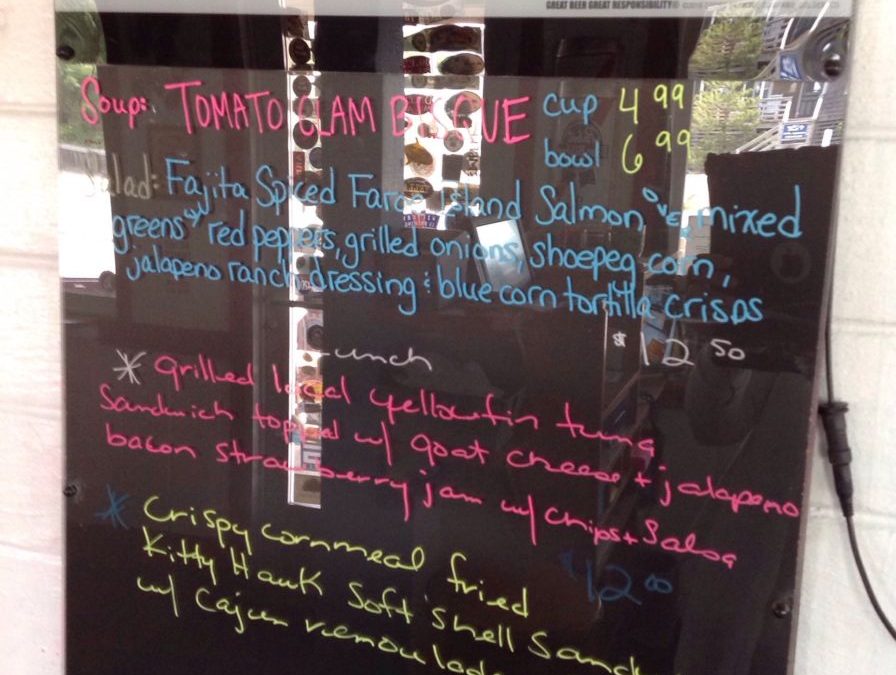 GREAT BEER GREAT RESPONSIBILITY®
Soup: TOMATO CLAM BISQUE cup 4 99
bowl 6 99
Salad: Fajita Spiced Faroe Island Salmon over mixed
greens w/ red peppers, grilled onions, shoepeg corn,
jalapeno ranch dressing & blue corn tortilla crisps
$12 50
Lunch
* grilled local yellowfin tuna
sandwich topped w/ goat cheese + jalapeno
bacon strawberry jam w/ chips + Salsa
$12 00
* Crispy cornmeal fried
Kitty Hawk Soft Shell Sand
w/ Cajun remoulade